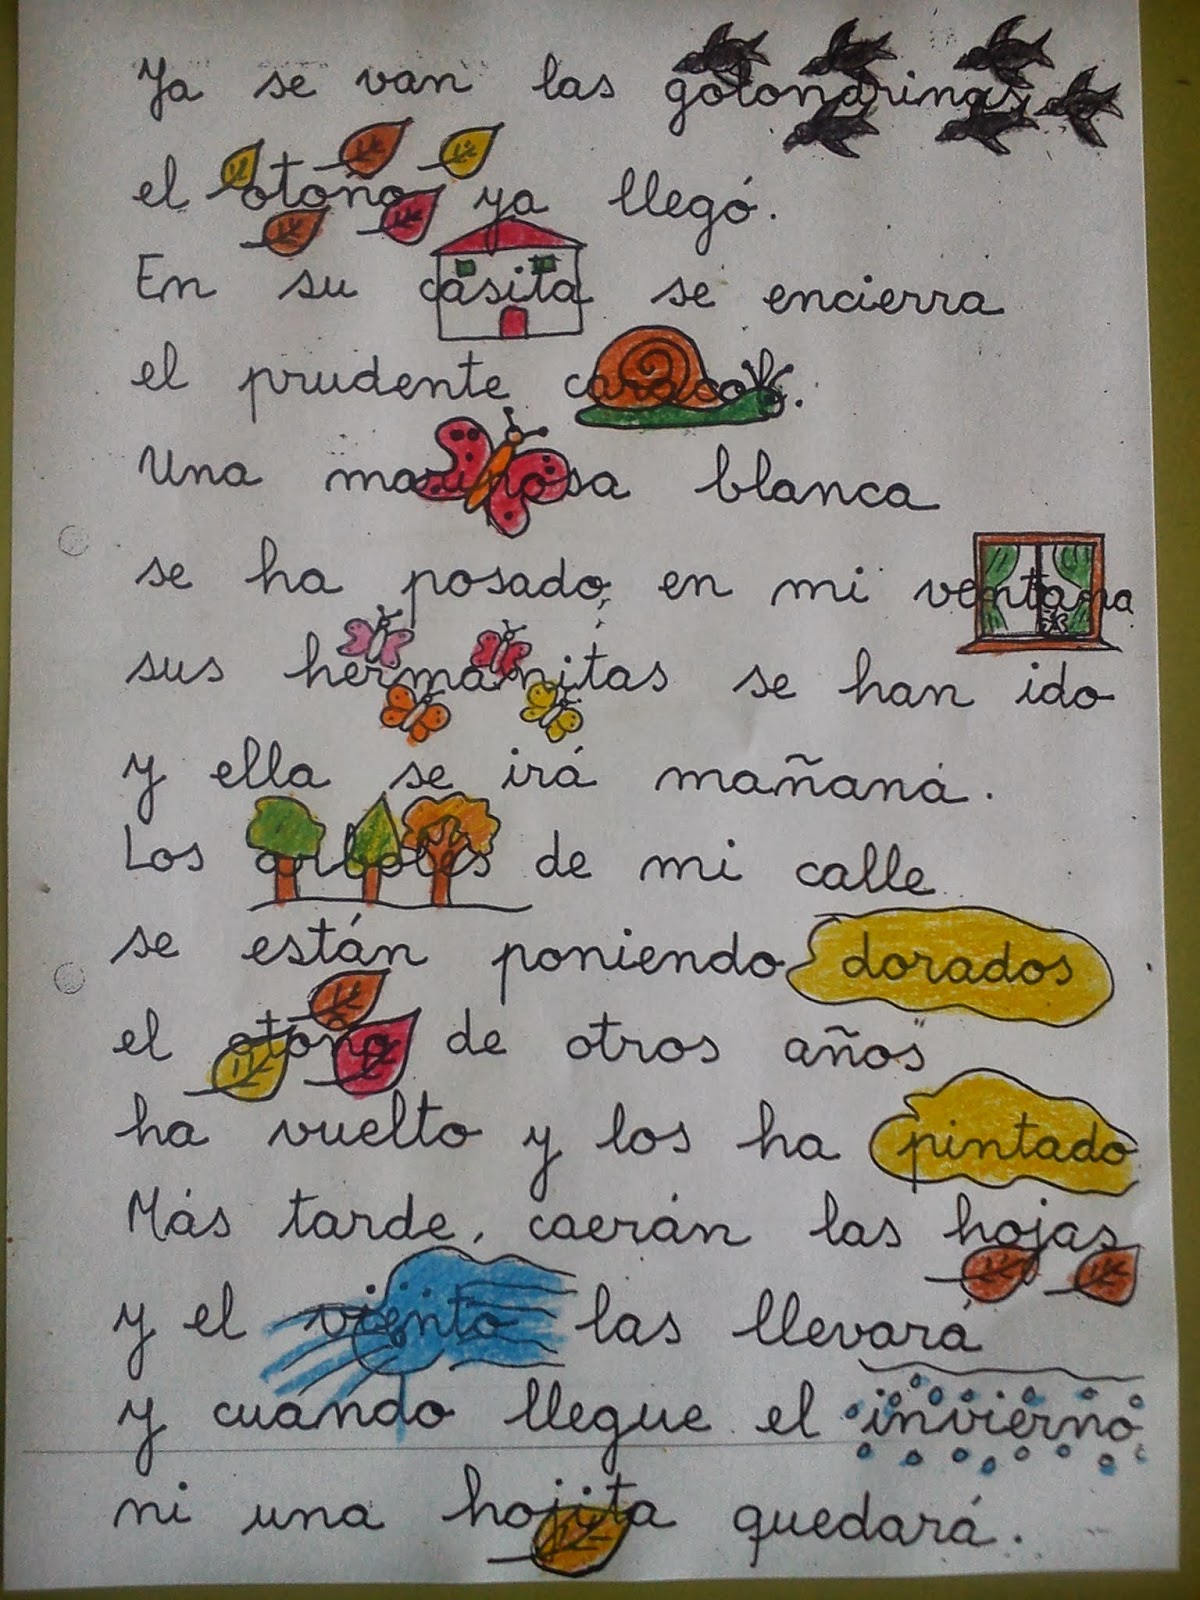 Ya se van las golondrinas,
el otoño ya llegó.
En su casita se encierra
el prudente caracol.
Una mariposa blanca
se ha posado, en mi ventana
sus hermanitas se han ido
y ella se irá mañana.
Los árboles de mi calle
se están poniendo dorados
el otoño de otros años
ha vuelto y los ha pintado
Más tarde, caerán las hojas
y el viento las llevará
y cuando llegue el invierno
ni una hojita quedará.